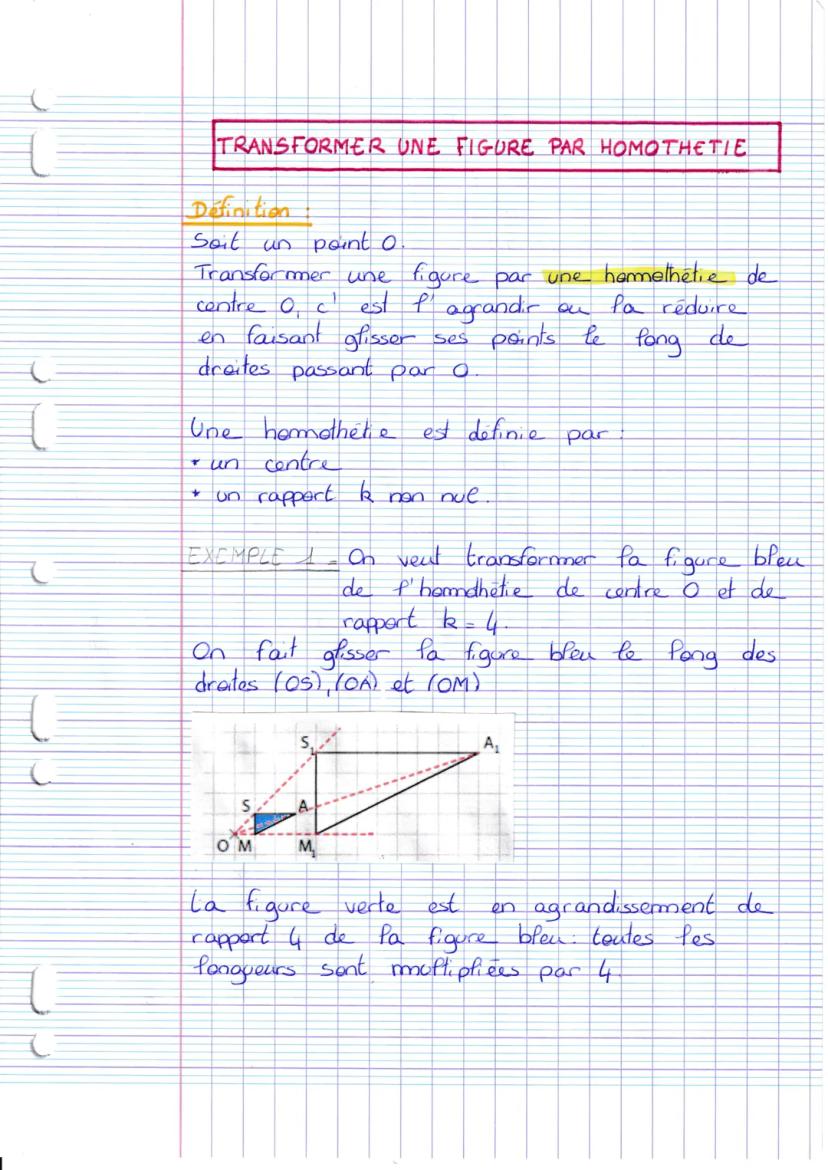 TRANSFORMER UNE FIGURE PAR HOMOTHETIE
Définition :
Soit un point O.
Transformer une figure par une homothétie de
centre O, c'est l'agrandir ou la réduire
en faisant glisser ses points le long de
droites passant par O.
Une homothétie est définie par :
* un centre
* un rapport k non nul.
EXEMPLE 1 - On veut transformer la figure bleu
de l'homothétie de centre O et de
rapport k = 4.
On fait glisser la figure bleu le long des
droites (OS), (OA) et (OM)
S₁ A₁
S A
O M M₁
La figure verte est en agrandissement de
rapport 4 de la figure bleu : toutes les
longueurs sont multipliées par 4.